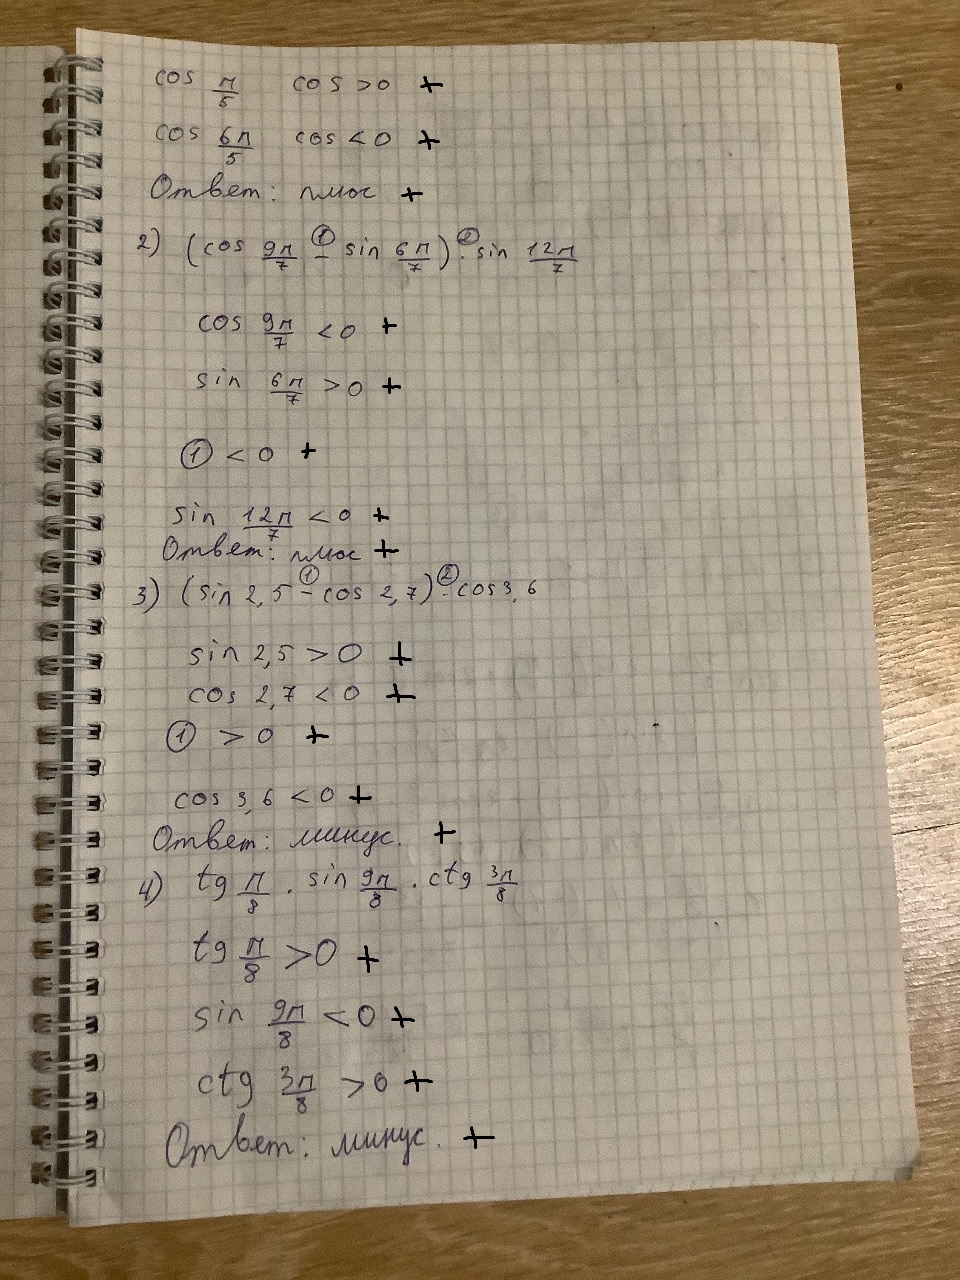 cos π/5 cos > 0 +
cos 6π/5 cos < 0 +
Ответ: плюс +
2) (cos 9π/7 ①− sin 6π/7) ②· sin 12π/7
cos 9π/7 < 0 +
sin 6π/7 > 0 +
① < 0 +
sin 12π/7 < 0 +
Ответ: плюс +
3) (sin 2,5 ①− cos 2,7) ②· cos 3,6
sin 2,5 > 0 +
cos 2,7 < 0 +
① > 0 +
cos 3,6 < 0 +
Ответ: минус. +
4) tg π/8 · sin 9π/8 · ctg 3π/8
tg π/8 > 0 +
sin 9π/8 < 0 +
ctg 3π/8 > 0 +
Ответ: минус. +